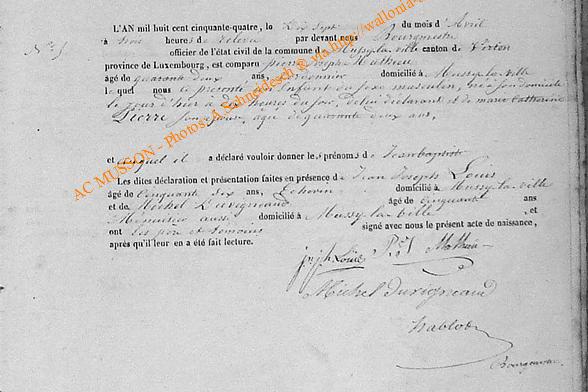 L'AN mil huit cent cinquante-quatre, le Dix Sept du mois d'Avril
N.° 5.
à trois heures de relevée par devant nous Bourgmestre
officier de l'état civil de la commune de Mussy-la-ville canton de Virton
province de Luxembourg, est comparu pierre Joseph Mathieu
âgé de quarante deux ans, domicilié à Mussy-la-ville
lequel nous a présenté un Enfant du sexe masculin, né à son domicile
le jour d'hier à dix heures du soir, de lui déclarant et de marie Catherine
Pierre son épouse, agée de quarante deux ans,
et auquel il a déclaré vouloir donner les prénoms de Jean baptiste
Les dites déclaration et présentation faites en présence de Jean Joseph Louis
âgé de Cinquante Six ans, Echevin domicilié à Mussy-la-ville
et de Michel Duvigneaud âgé de Cinquante ans
Menuisier aussi domicilié à Mussy-la-ville et
ont les père et temoins signé avec nous le présent acte de naissance,
après qu'il leur en a été fait lecture.
Jph Louis P. J. Mathieu
Michel Duvigneaud
Bourgmestre
AC MUSSON - Photos: A. Schneidesch @ via http://wallonia-a